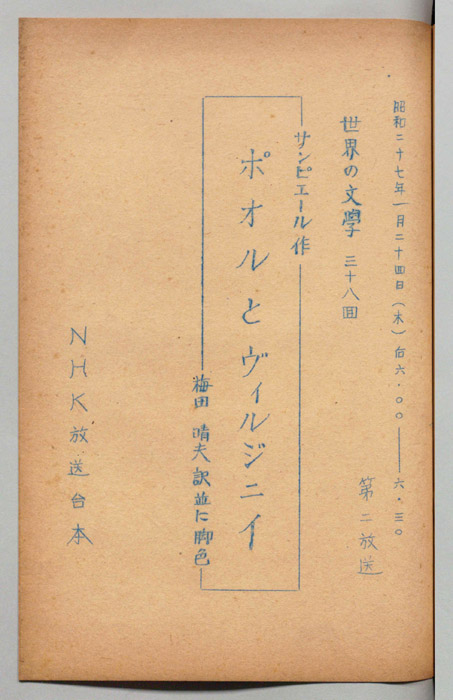 昭和二十七年一月二十四日(木)后六・〇〇——六・三〇
第二放送
世界の文學 三十八回
サンピエール作
ポオルとヴィルジニイ
梅田晴夫訳並に脚色
NHK放送台本